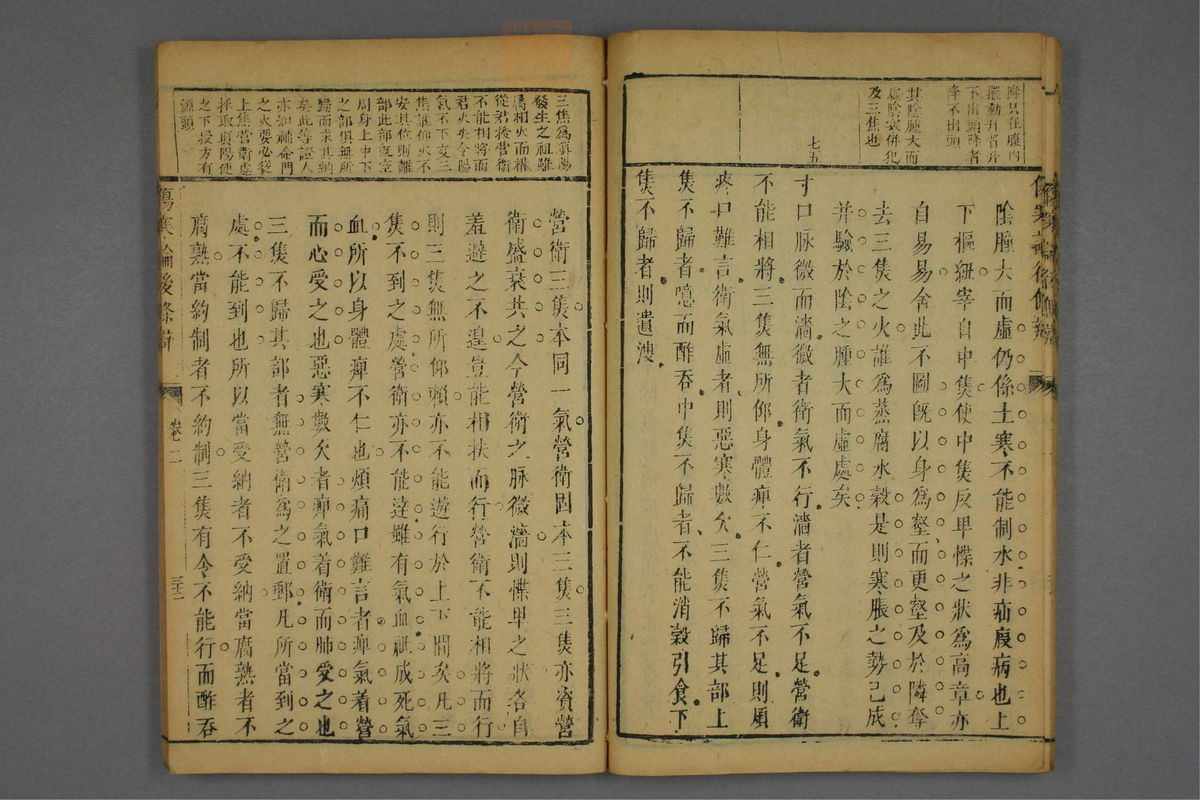 降只在腹內
擺動升者升
不出頭降者
降不出頭
其陰腫大而
虛陰囊併犯
及三焦也
七五
陰腫大而虛仍係土寒不能制水非疝瘕病也上
下樞紐宰自中焦使中焦反卑惵之狀為高章亦
自易易舍此不圖既以身為壑而更壑及於隣奪
去三焦之火誰為蒸腐水穀是則寒脹之勢已成
并驗於陰之腫大而虛處矣
寸口脉微而濇微者衛氣不行濇者營氣不足營衛
不能相將三焦無所仰身體痺不仁營氣不足則煩
疼口難言衛氣虛者則惡寒數欠三焦不歸其部上
焦不歸者噫而酢吞中焦不歸者不能消穀引食下
焦不歸者則遺溲
三焦為
發生之祖雖
屬相火而權
從君後營衛
不能相將而
君火失令陽
氣不下交三
焦誰仰火不
安其位則離
部此部既空
周身上中下
之部俱無所
歸而束其納
矣此等證人
亦知補命門
之火要必從
上焦營衛處
採取真陽使
之下援方有
源頭
營衛三焦本同一氣營衛固本三焦三焦亦資營
衛盛衰共之今營衛之脉微濇則惵卑之狀各自
羞避之不遑豈能相扶而行營衛不能相將而行
則三焦無所仰賴亦不能遊行於上下間矣凡三
焦不到之處營衛亦不能達雖有氣血祇成死氣
血所以身體痺不仁也煩痛口難言者痺氣着營
而心受之也惡寒數欠者痺氣着衛而肺受之也
三焦不歸其部者無營衛為之置郵凡所當到之
處不能到也所以當受納者不受納當腐熟者不
腐熟當約制者不約制三焦有令不能行而酢吞
傷寒論後條辨
卷二
三十二